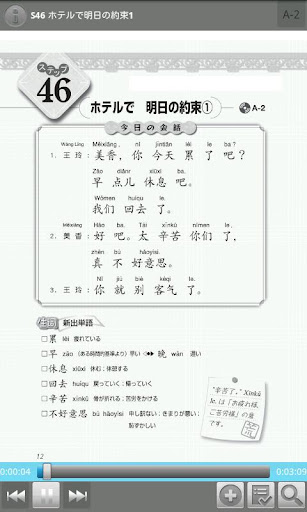 S46 ホテルで明日の約束1
A-2
ステップ
46
ホテルで 明日の約束①
A-2
今日の会話
Wáng Líng Měixiāng, nǐ jīntiān lèi le ba?
1. 王玲：美香，你 今天 累 了 吧？
Zǎo diǎnr xiūxi ba.
早 点儿 休息 吧。
Wǒmen huíqu le.
我们 回去 了。
Měixiāng Hǎo ba. Tài xīnkǔ nǐmen le,
2. 美香：好 吧。太 辛苦 你们 了，
zhēn bù hǎoyìsi.
真 不 好意思。
Nǐ jiù bié kèqi le.
3. 王玲：你 就 别 客气 了。
新出単語
□累 lèi 疲れている
□早 zǎo（ある時間的基準より）早い ⇔ 晩 wǎn 遅い
□休息 xiūxi 休む；休憩する
□回去 huíqu 戻っていく；帰っていく
□辛苦 xīnkǔ 骨が折れる；苦労をかける
□不好意思 bù hǎoyìsi 申し訳ない；きまりが悪い；
恥ずかしい
"辛苦了。" Xīnkǔ
le. は「お疲れ様、
ご苦労様」の意
です。
12
0:00:04
0:03:09